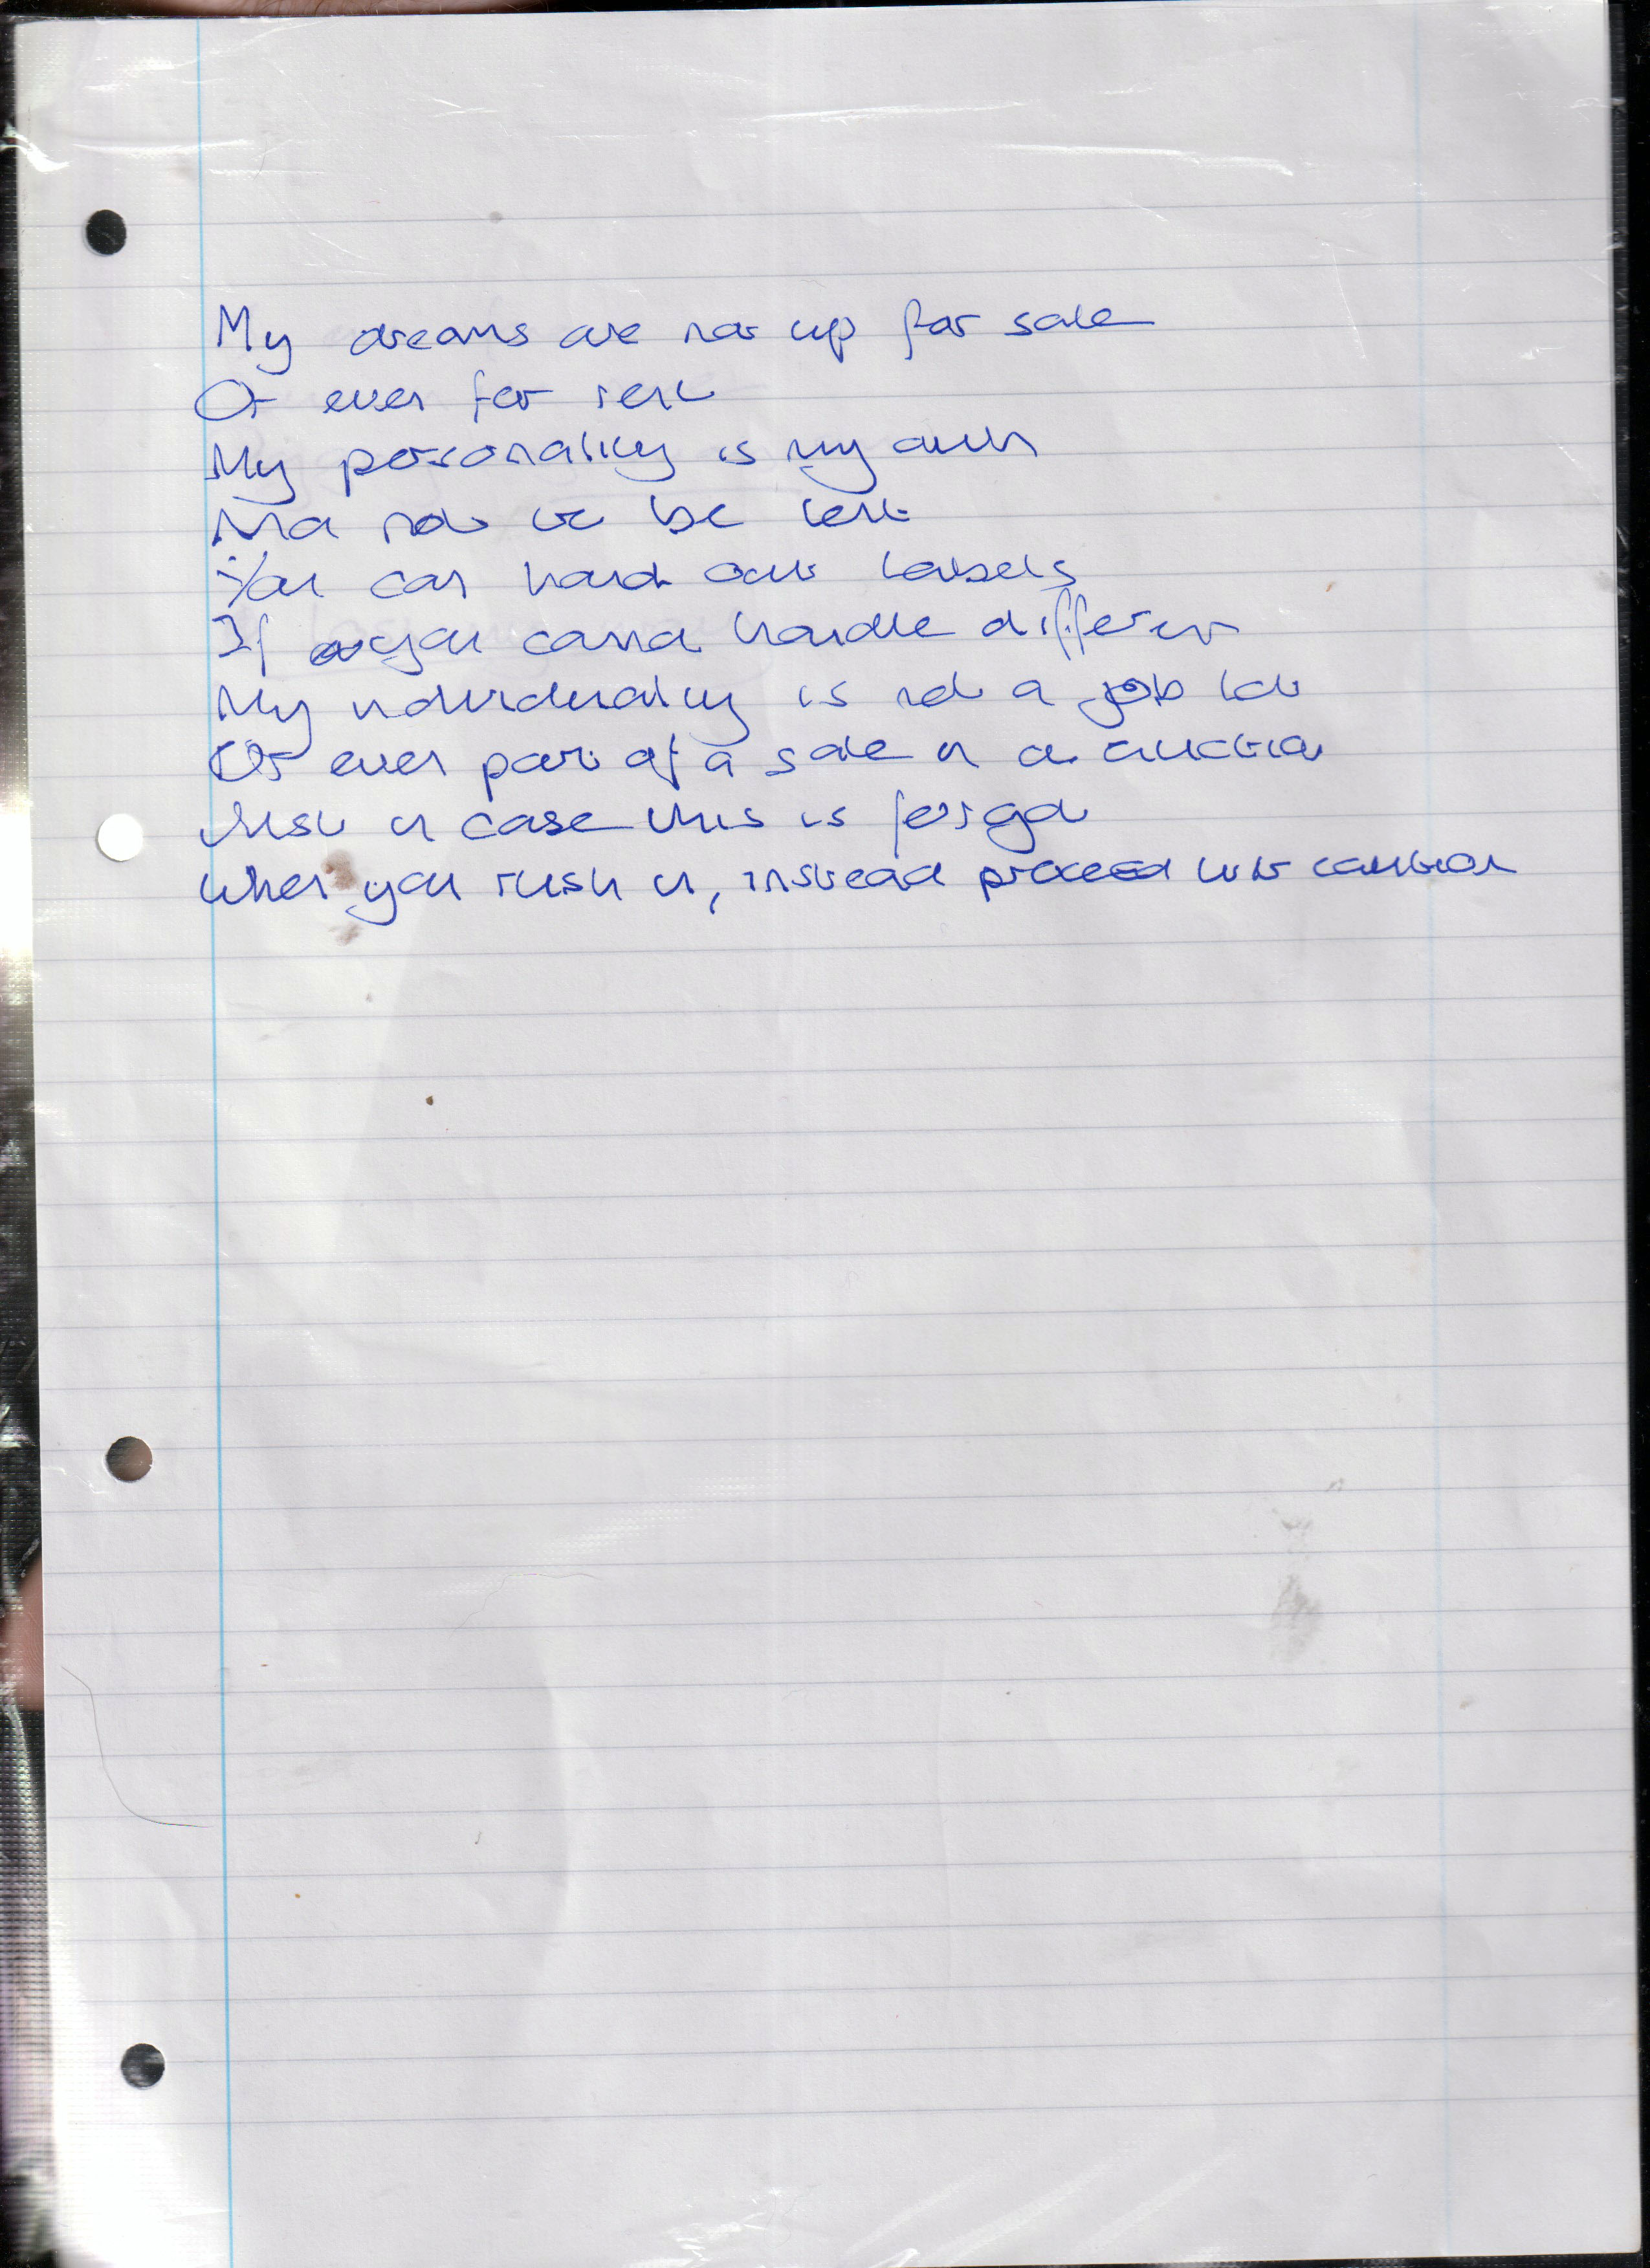 My dreams are not up for sale
Or even for rent
My personality is my own
And not to be lent
You can hand out labels
If you cannot handle different
My individuality is not a job lot
Or even part of a sale in an auction
Just in case this is forgot
When you rush in, instead proceed with caution